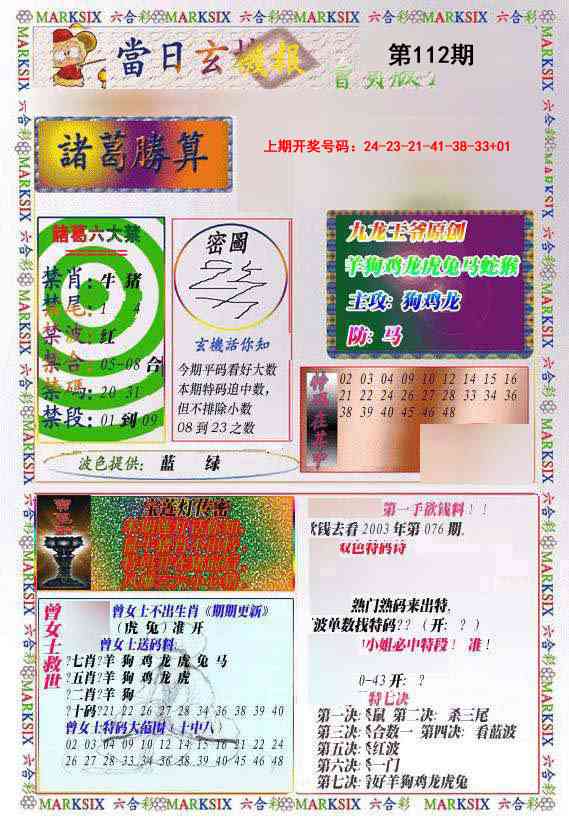 MARKSIX 六合彩 MARKSIX 六合彩 MARKSIX 六合彩 MARKSIX 六合彩 MARKSIX
當日玄機報
第112期
諸葛勝算
上期开奖号码：24-23-21-41-38-33+01
諸葛六大禁
禁肖：牛 猪
禁尾：1 4
禁波：红
禁合：05-08合
禁碼：20 31
禁段：01到09
密圖
玄機活你知
今期平码看好大数
本期特码追中数，
但不排除小数
08到23之数
九龙王爷原创
羊狗鸡龙虎兔马蛇猴
主攻：狗鸡龙
防：马
02 03 04 09 10 12 14 15 16
21 22 24 26 27 28 33 34 36
38 39 40 45 46 48
波色提供：蓝 绿
宝莲灯传密
第一手欲钱料！！
欠钱去看2003年第076期，
双色特码诗
熱门熱码来出特，
波单数找特码??（开：？）
小姐必中特段！准！
0-43开：？
特七决
第一决：杀鼠 第二决：杀三尾
第三决：杀合数一 第四决：看蓝波
第五决：杀红波
第六决：杀一门
第七决：看好羊狗鸡龙虎兔
曾女士救世
曾女士不出生肖《期期更新》
（虎 兔）准 开
曾女士送码料
?七肖?羊 狗 鸡 龙 虎 兔 马
?五肖?羊 狗 鸡 龙 虎
?二肖?羊 狗
?十码?21 22 26 27 28 34 36 38 39 40
曾女士特码大范围：十中八
02 03 04 09 10 12 14 15 18 21 22 24
26 27 28 33 34 36 38 39 40 45 46 48
MARKSIX 六合彩 MARKSIX 六合彩 MARKSIX 六合彩 MARKSIX 六合彩 MARKSIX